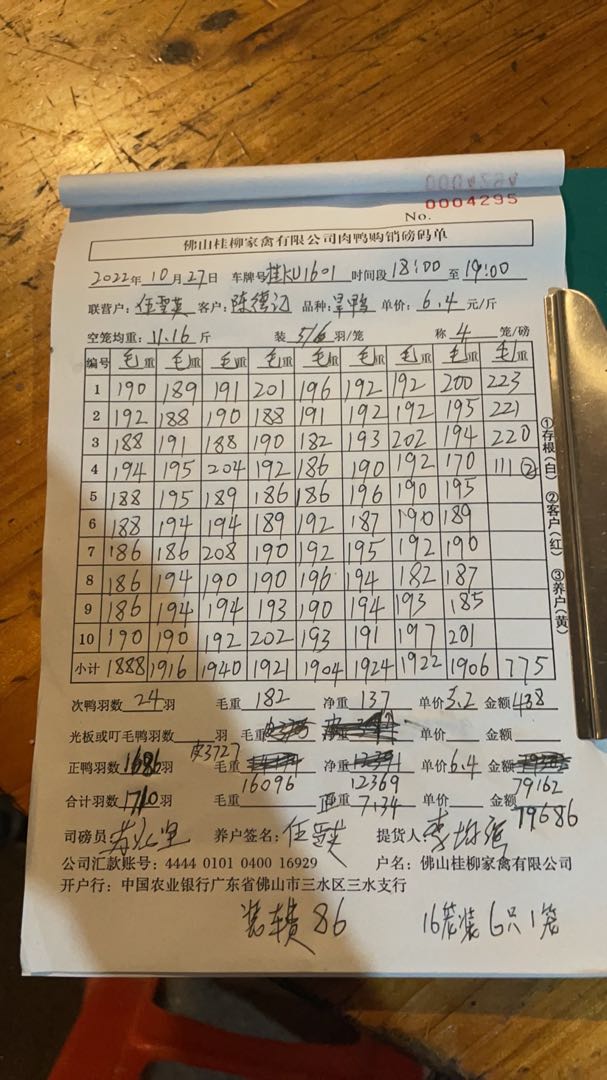 0004295
No.
佛山桂柳家禽有限公司肉鸭购销磅码单
2022年10月27日 车牌号桂KU1601 时间段18:00至19:00
联营户: 任雪英 客户: 陈德记 品种: 旱鸭 单价: 6.4元/斤
空笼均重: 11.16斤 装5/6羽/笼 称4笼/磅
编号 毛重 毛重 毛重 毛重 毛重 毛重 毛重 毛重 毛重
1 190 189 191 201 196 192 192 200 223
2 192 188 190 188 191 192 192 195 221
3 188 191 188 190 182 193 202 194 220
4 194 195 204 192 186 190 192 170 111 ②
5 188 195 189 186 186 196 190 195
6 188 194 194 189 192 187 190 189
7 186 186 208 190 192 195 192 190
8 186 194 190 190 196 194 182 187
9 186 194 194 193 190 194 193 185
10 190 190 192 202 193 191 197 201
小计 1888 1916 1940 1921 1904 1924 1922 1906 775
①存根(白) ②客户(红) ③养户(黄)
次鸭羽数24羽 毛重182 净重137 单价3.2 金额438
光板或叮毛鸭羽数 羽 毛重 净重 单价 金额
皮3727
正鸭羽数1686羽 毛重 净重 单价6.4 金额
16096 12369 79162
合计羽数1710羽 毛重 净重7.34 单价 金额79686
司磅员 养户签名: 任雪英 提货人
公司汇款账号: 4444 0101 0400 16929 户名: 佛山桂柳家禽有限公司
开户行: 中国农业银行广东省佛山市三水区三水支行
装车费86 16笼装6只1笼